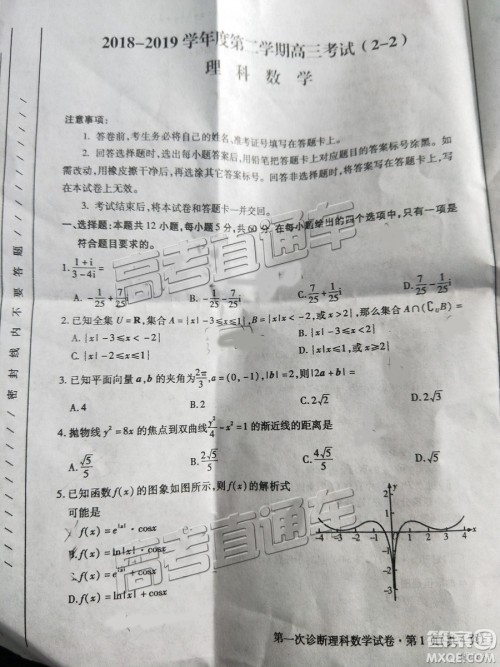 2018-2019 学年度第二学期高三考试(2-2)
理 科 数 学
注意事项:
1. 答卷前,考生务必将自己的姓名、准考证号填写在答题卡上。
2. 回答选择题时,选出每小题答案后,用铅笔把答题卡上对应题目的答案标号涂黑。如
需改动,用橡皮擦干净后,再选涂其它答案标号。回答非选择题时,将答案写在答题卡上。写
在本试卷上无效。
3. 考试结束后,将本试卷和答题卡一并交回。
一、选择题:本题共 12 小题,每小题 5 分,共 60 分。在每小题给出的四个选项中,只有一项是
符合题目要求的。
1. (1+i)/(3-4i) =
A. -1/25 + 7/25 i B. -1/25 - 7/25 i C. 7/25 + 1/25 i D. 7/25 - 1/25 i
2. 已知全集 U=R,集合 A={x|-3≤x≤1},B={x|x<-2,或 x>2},那么集合 A∩(∁UB)=
A. {x|-3≤x<-2} B. {x|-2≤x≤1}
C. {x|-2≤x≤2} D. {x|x≤1,或 x≥2}
3. 已知平面向量 a,b 的夹角为 2π/3,a=(0,-1),|b|=2,则|2a+b|=
A. 4 B. 2 C. 2√2 D. 2√3
4. 抛物线 y²=8x 的焦点到双曲线 y²/4 - x²=1 的渐近线的距离是
A. √5/5 B. 2√5/5 C. 4√5/5 D. √5
5. 已知函数 f(x) 的图象如图所示,则 f(x) 的解析式
可能是
A. f(x)=e^|x|·cosx
B. f(x)=ln|x|·cosx
C. f(x)=e^|x|+cosx
D. f(x)=ln|x|+cosx
y
2
x
-4 -3 -2 -1 1 2 3 4
第一次诊断理科数学试卷·第 1
密 封 线 内 不 要 答 题
高考直通车
高考直通车
答案圈
MXQE.COM